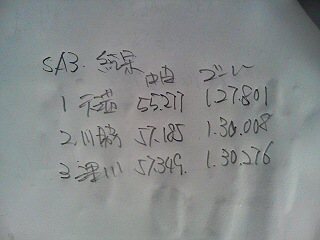 SA3. 結果
中間 ゴール
1 55.217 1.27.801
2. 川崎 57.185 1.30.008
3. 深川 57.349. 1.30.276